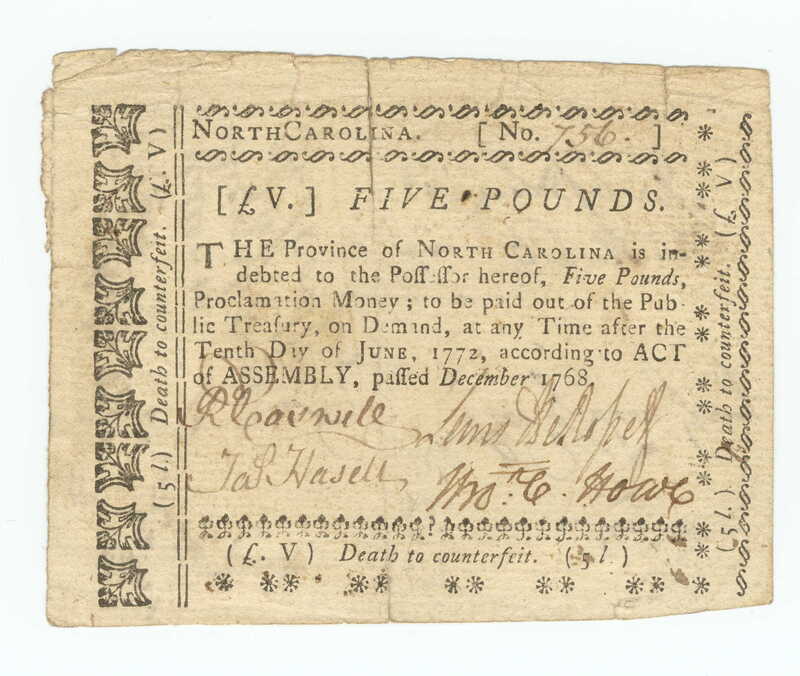 NORTH CAROLINA. [ No. 756. ]
[ £ V. ] FIVE POUNDS.
THE Province of NORTH CAROLINA is in-
debted to the Poſſeſſor hereof, Five Pounds,
Proclamation Money; to be paid out of the Pub-
lic Treaſury, on Demand, at any Time after the
Tenth Day of JUNE, 1772, according to ACT
of ASSEMBLY, paſſed December 1768
R Caswell Lewis De Rosset
Jas. Hasell Thos. C. Howe
(£. V) Death to counterfeit. (5 l)
(5 l) Death to counterfeit. (£. V)
(5 l.) Death to counterfeit. (£. V)